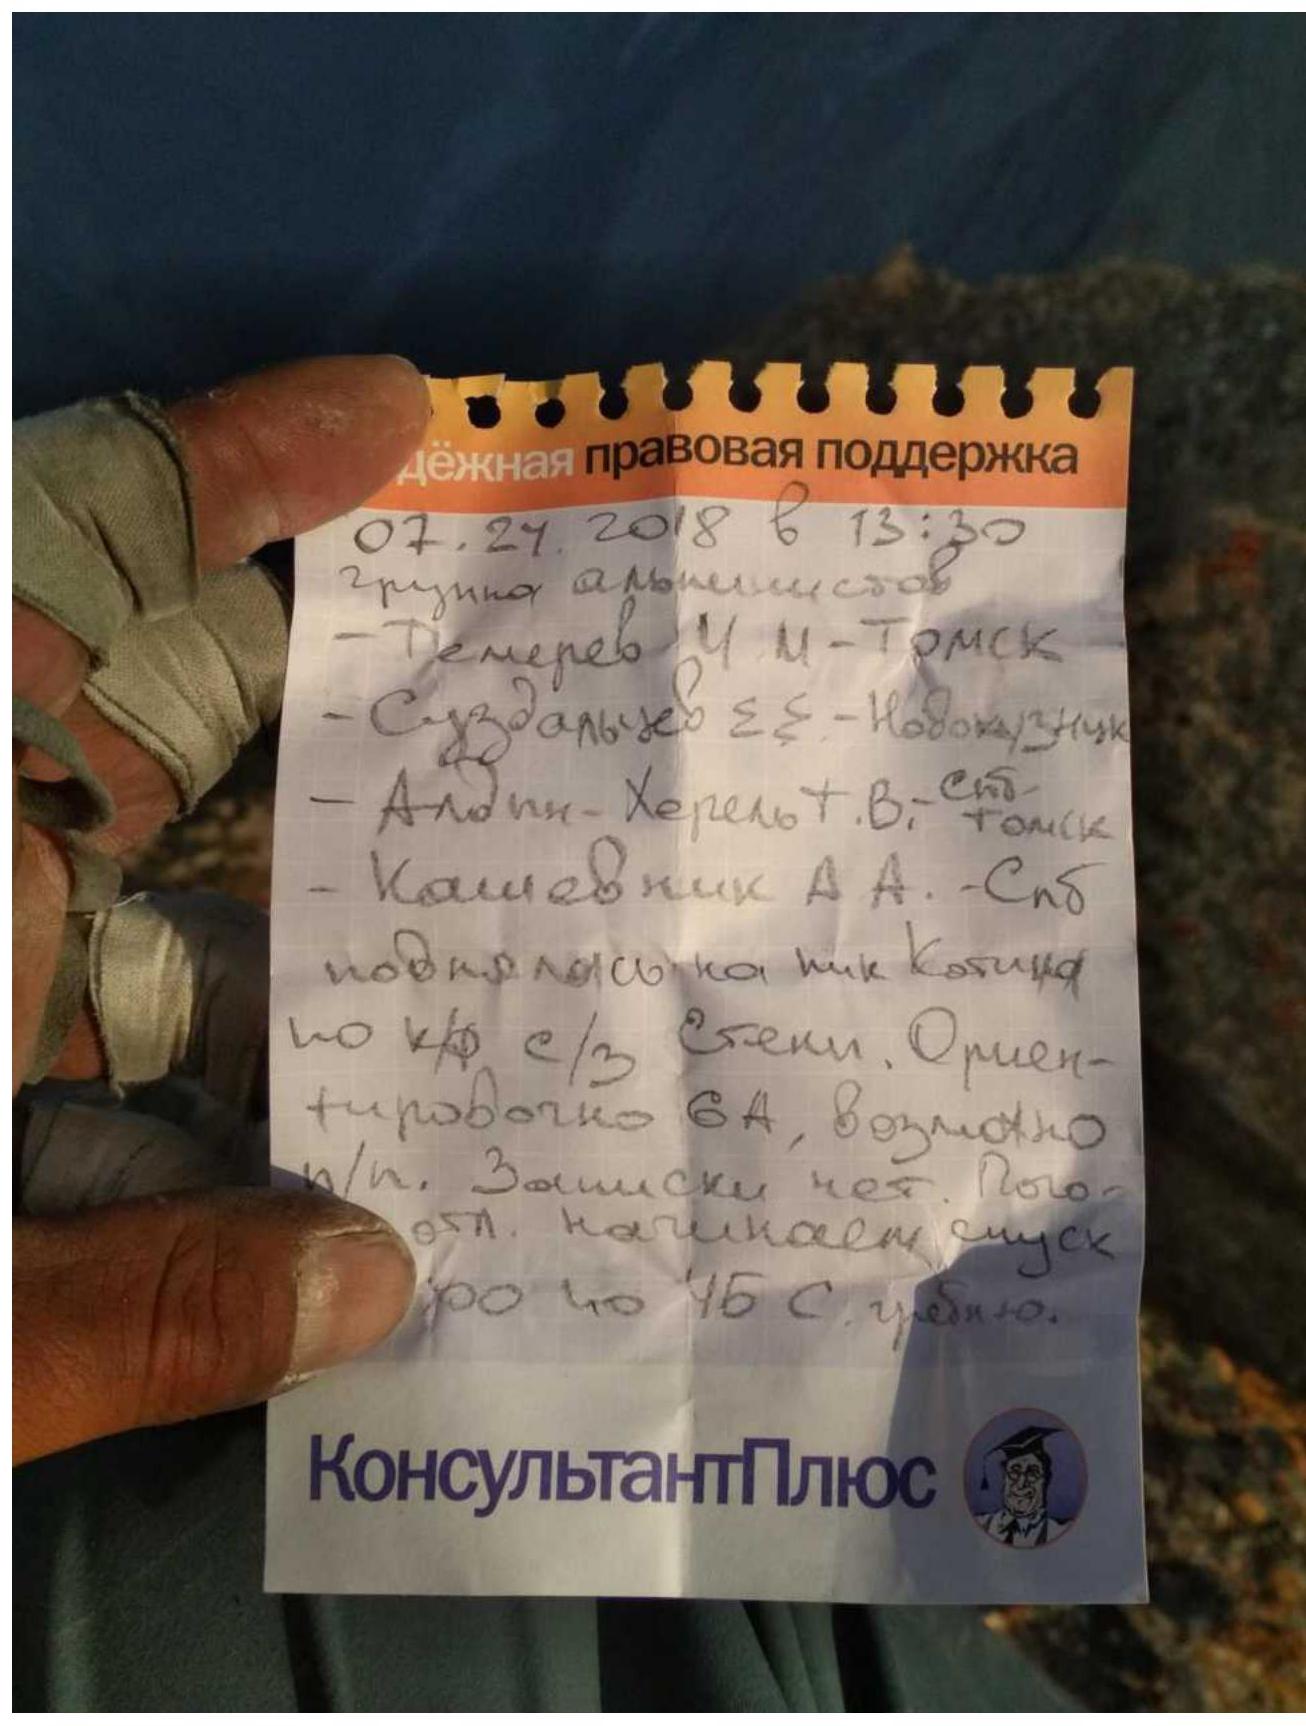 дёжная правовая поддержка
07.24.2018 в 13:30
группа альпинистов
- Темерев И И - Томск
- Суздальцев ЕЕ. - Новокузнецк
- Алдын-Херель Т.В. - Спб-
Томск
- Кашевник А А. - Спб
поднялась на пик Котина
по к/ф с/з Стены. Ориен-
тировочно 6А, возможно
п/п. Записки нет. Пого-
отл. Начинаем спуск
по 4Б С. гребню.
КонсультантПлюс